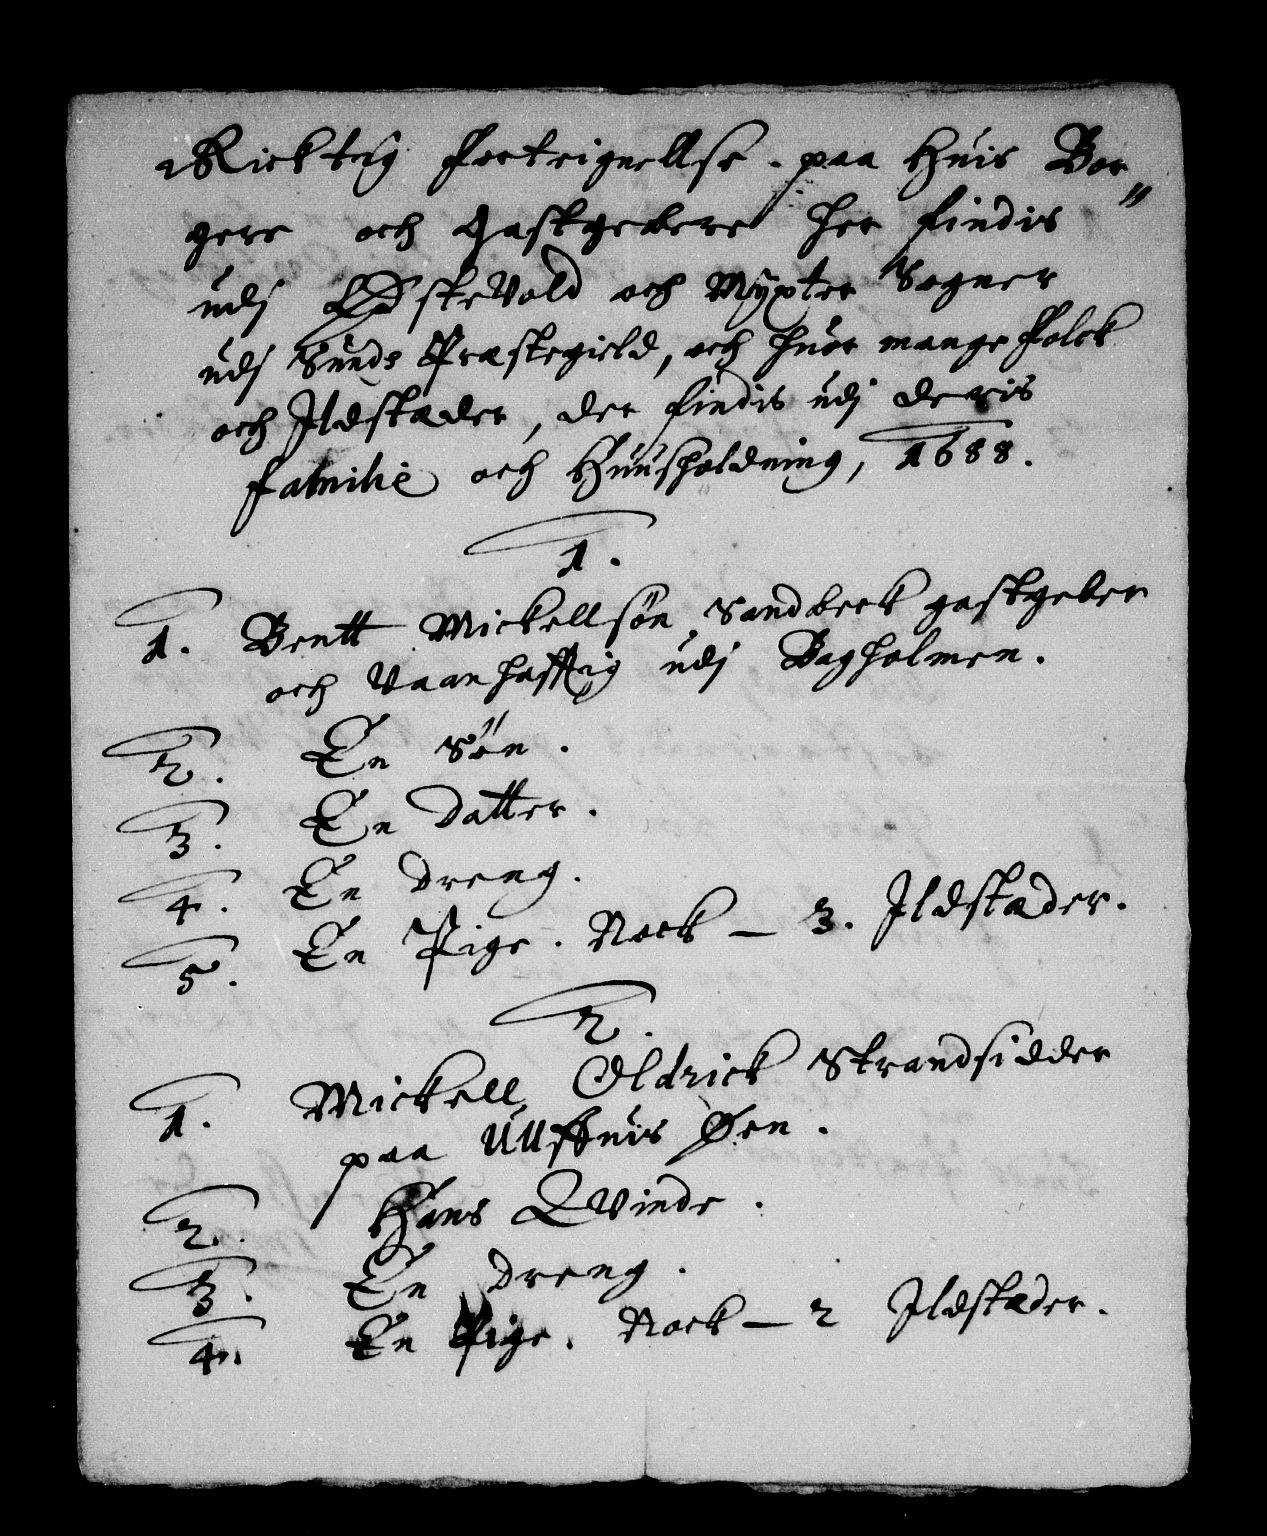 Ricktig Forteignellse paa Huis Bor„
gere och Gastgebere her findis
udj Østevold och Myxter Sogner
udj Sunds Præstegield, och huor mange Folck
och Ildstæder, der findis udj deris
Familie och Huusholdning, 1688.
1.
1. Bentt Mickellsøn Sandbeck gastgeber
och Vaanhafftig udj Bagholmen.
2. En Søn.
3. En Datter.
4. En Dreng.
5. En Pige. Nock — 3. Ildstæder.
2.
1. Mickell Oldrick Strandsidder
paa Øen.
2. Hans Qvinde.
3. En Dreng.
4. En Pige. Nock — 2 Ildstæder.